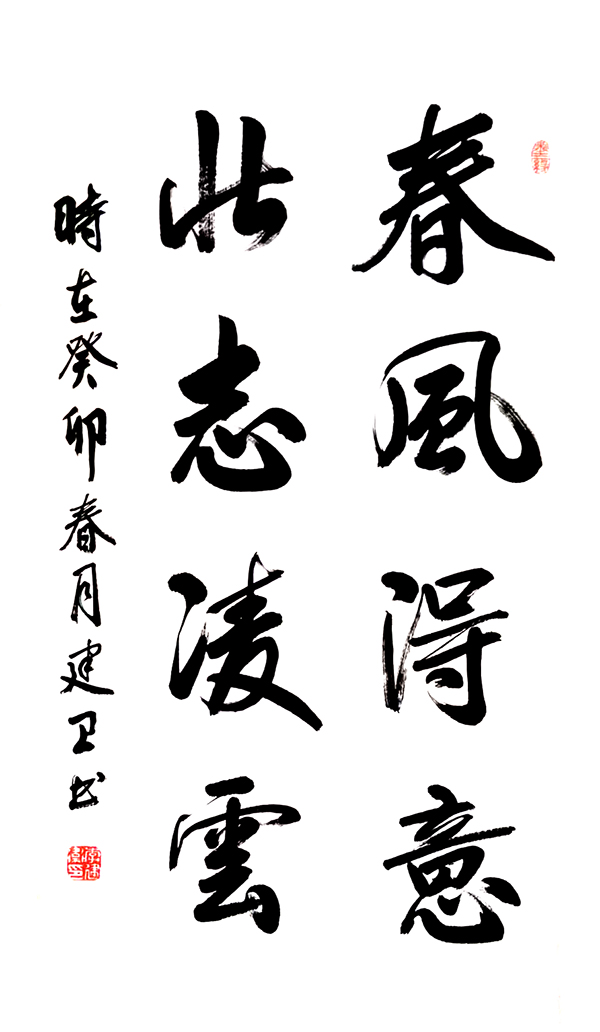 春風得意
壮志凌雲
時在癸卯春月建卫书